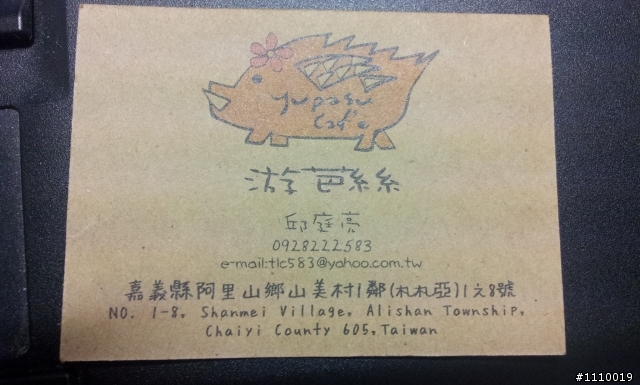 yupasu
Caf'e
游芭絲絲
邱庭亮
0928222583
e-mail:tlc583@yahoo.com.tw
嘉義縣阿里山鄉山美村1鄰(札札亞)1之8號
NO. 1-8, Shanmei Village, Alishan Township,
Chaiyi County 605, Taiwan
#1110019